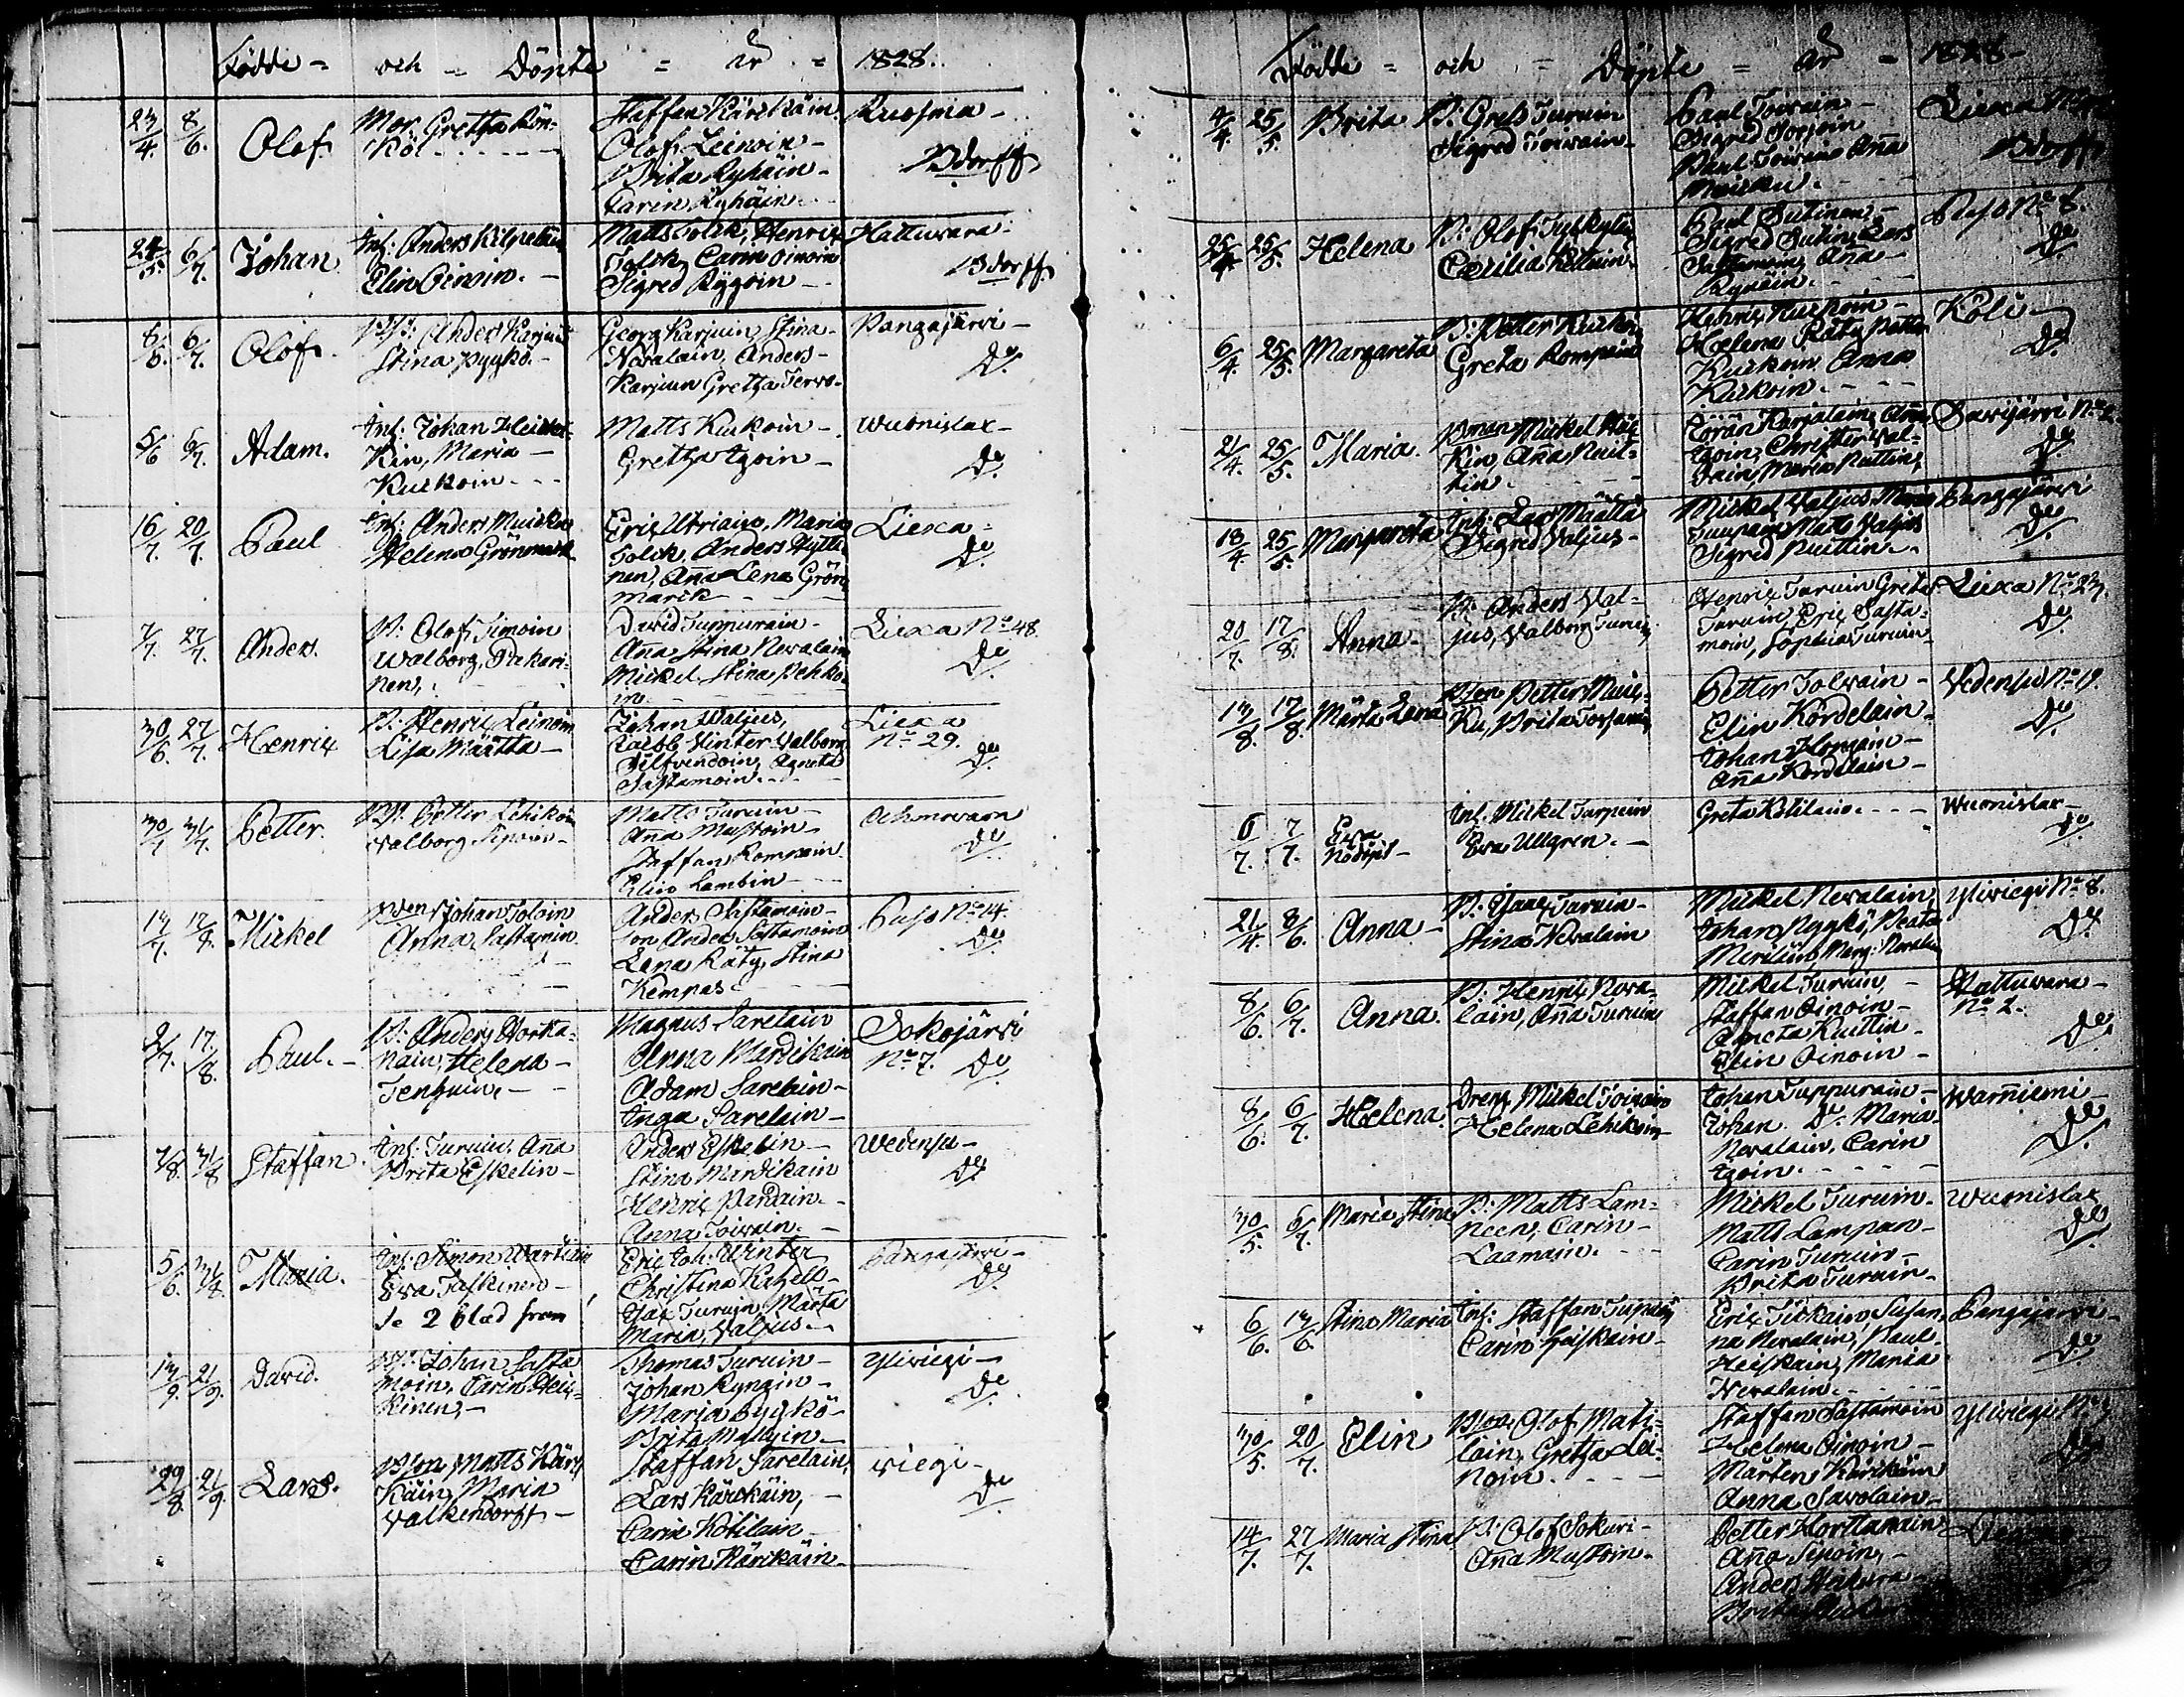 Födde = och = Döpte = år = 1828.
23/4. 8/6. Olof. Mor. Gretha Kön-
köl - - - -
Staffan Kärckäin.
Olof Leinoin -
Brita Ryhäin -
Carin Ryhäin.
Ruosma -
Bdorff
24/5. 6/7. Johan. Inh: Anders Kilpeläin
Elin Oinoin. -
Matts Tolck, Henrix
Tolck, Carin Oinoin
Sigred Rygöin -
Hattuvara -
Bdorff.
8/6. 6/7. Olof. Anders Karjuin
Stina Pygkö. -
Georg Karjuin, Stina
Nevalain, Anders -
Karjuin Gretha Tervo-
Pangajärvi -
Do.
5/6 6/7. Adam. Inh: Johan Heisker-
Kin, Maria -
Kuckoin - - -
Matts Kuckoin -
Gretha Egoin -
Wuonislax -
Do.
16/7. 20/7. Paul Inh: Anders Muicku
Helena Grönmark
Eric Utriain, Maria
Tolck, Anders Hytti-
nen, Ana Lena Grön-
marck - - -
Liexa =
Do.
7/7. 27/7. Anders. B: Olof Timoin
Walborg Pakari-
nen, -
David Tuppurain -
Ana Stina Nevalain
Mickel, Stina Pehko-
in. -
Liexa No 48.
Do.
30/6. 27/7. Henrix B: Henrix Leinoin
Lisa Määttä -
Johan Waljus,
Jacob Winter Valborg
Silfvendoin, Agneta
Sastamoin. - -
Liexa
No 29.
Do.
30/7 31/7. Petter. Petter Lehikoin
Valborg Sipoin -
Matts Turuin -
Ana Mustoin -
Staffan Rompain.
Elin Lambin -
Do.
17/8. Mickel Johan Toloin
Anna Sastamoin
Anders Sastamoin -
son Anders Sastamoin
Lena Räty, Stina
Kempas. -
Puso No 14.
Do.
2/7. 17/8. Paul. - B: Anders Horta-
nain, Helena -
Tenhuin, -
Magnus Sarelain
Anna Mardikain
Adam Sarelain -
Inga Sarelain -
Sokojärvi
No 7. Do.
7/8. 31/8 Staffan. Inh: Turuin, Ana
Brita Eskelin -
Anders Eskelin -
Stina Mardikain
Henrix Pandain. -
Anna Toivain. -
Wedensu -
Do.
5/6. 31/8. Maria. Inh: Simon Wartiain
Eva Taskinen -
Se 2 blad fram
Eric Joh: Winter
Christina Kasell -
Olof Turuin, Märta
Maria Valjus. -
Pangajärvi -
Do.
21/9. David. Johan Sasta
moin, Carin Heis-
kinen, -
Thomas Turuin -
Johan Ryngin -
Maria Pygkö -
Brita Mallgin. -
Yliviegi -
Do.
29/8. 21/9. Lars. Bson Matts Kärc-
käin, Maria
Valkendorff -
Staffan Sarelain,
Lars Kärckäin, -
Carin Kotilain -
Carin Kärckäin -
viegi -
Do.
Födde = och = Döpte = år = 1828 -
4/4. 25/5. Brita B: Grels Turuin
Sigred Toivain -
Paul Toivain -
Sigred Sorjoin
Paul Toivain Ana
Muicku. -
Liexa No
Bdorff
25/4 25/5. Helena B: Olof Jyskylä
Cecilia Kettuin.
Paul Sutinen, -
Sigred Sutin, Lars
Sastamoin, Ana -
Rynöin. - -
Puso No 8.
Do.
6/4. 25/5. Margareta B: Petter Kuckoin
Greta Rompain
Henrix Kuckoin -
Helena Räty, Petter
Kuckoin Anna
Kuckoin. - - -
Koli -
Do.
21/4. 25/5. Maria. Mickel Här-
kin, Ana Ruit-
tin. -
Göran Karjalain, Ana
Egoin, Christer Val-
dain, Maria Ruttin,
Savijärvi No 2.
Do.
13/4. 25/5. Margareta Inh: Lars Määttä
Sigred Valjus -
Mickel Valjus, Maria
Matts Valjus
Sigred Ruittin. -
Pangajärvi
Do.
20/7. 17/8. Anna. B: Anders Val-
jus, Valborg Turuin,
Henrix Turuin Greta
Turuin, Eric Sasta-
moin, Sophia Turuin -
Liexa No 23.
Do.
17/8. Märta Lena Bson Petter Muic-
Ku, Brita Torfvain
Petter Tolvain -
Elin Kordelain -
Johan Homain -
Ana Kordelain -
Vedensu No 19.
Do.
6/7. 7/7. Eva
Nödöpt - Inh. Mickel Turpein
Eva Ullgren. -
Greta Kotilain. - - - Wuonislax -
Do.
21/4. 8/6. Anna - B: Isaac Turuin -
Stina Nevalain
Mickel Nevalain,
Johan Pygkö, Beata
Meriläin, Marg: Nevalain
Yliviegi No 8.
Do.
8/6. 6/7. Anna. B: Henrix Neva-
lain, Ana Turuin
Mickel Turuin, -
Staffan Oinoin -
Agneta Ruittin -
Elin Oinoin -
Hattuvara -
No 2.
Do.
8/6. 6/7. Helena. Dreng Mickel Toivain
Helena Lehikoin -
Johan Tuppurain -
Johan Do. Maria
Nevalain, Carin
Egoin. - - - -
Warniemi -
Do.
30/5. 6/7. Maria Stina B: Matts Lam-
neen, Carin -
Laamain. - -
Mickel Turuin.
Matts Lampan -
Carin Turuin -
Brita Turuin -
Wuonislax
Do.
6/6. Stina Maria Inh: Staffan Turuin
Carin Heiskain -
Eric Tickain, Susan-
na Nevalain, Paul
Heiskain, Maria
Nevalain. - - -
Pangajärvi -
Do.
30/5. 20/7. Elin Olof Mati-
lain, Gretha Lei-
noin. - - -
Staffan Sastamoin
Helena Oinoin -
Mårten Kärckäin
Anna Savolain -
Yliviegi No
14/7. 27/7. Maria Stina B: Olof Sokuri -
Ana Mustoin -
Petter Horttanain
Ana Sipoin, -
Anders
Brita